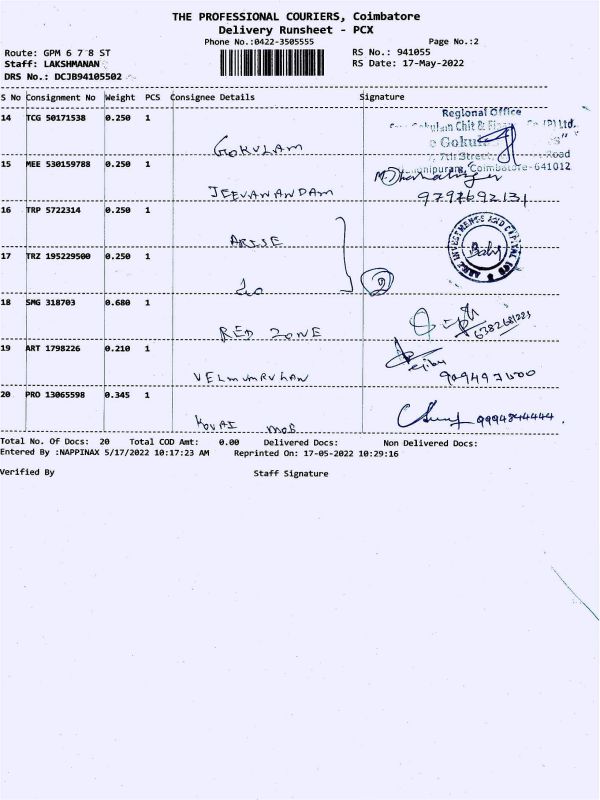 THE PROFESSIONAL COURIERS, Coimbatore
Delivery Runsheet - PCX
Phone No.:0422-3505555 Page No.:2
Route: GPM 6 7 8 ST RS No.: 941055
Staff: LAKSHMANAN RS Date: 17-May-2022
DRS No.: DCJB94105502
S No Consignment No Weight PCS Consignee Details Signature
14 TCG 50171538 0.250 1 GOKULAM
Regional Office
Chit & (P) Ltd.
7th Street, Road
Coimbatore-641012
15 MEE 530159788 0.250 1 JEEVANANDAM 9797692131
16 TRP 5722314 0.250 1 ARISE
17 TRZ 195229500 0.250 1 do 2
INVESTMENTS AND CAPITAL
18 SMG 318703 0.680 1 RED ZONE 6382681223
19 ART 1798226 0.210 1 VELMURUHAN
20 PRO 13065598 0.345 1 KOVAI MOB 9994844444.
Total No. Of Docs: 20 Total COD Amt: 0.00 Delivered Docs: Non Delivered Docs:
Entered By :NAPPINAX 5/17/2022 10:17:23 AM Reprinted On: 17-05-2022 10:29:16
Verified By Staff Signature